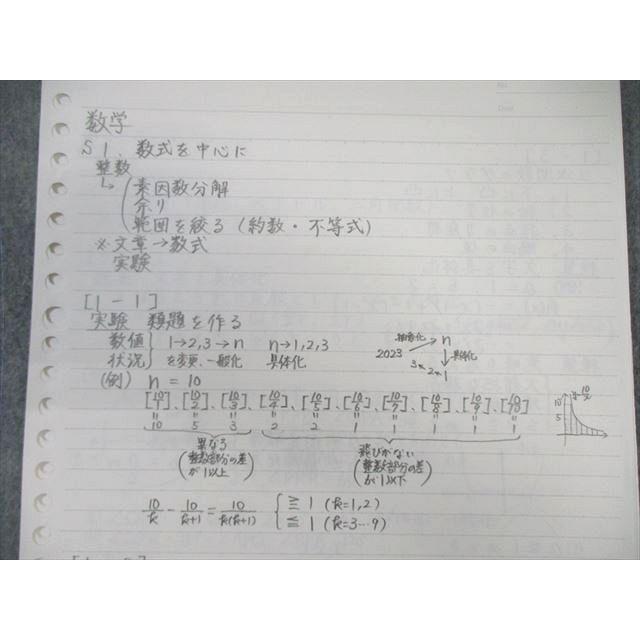 数学
§1. 数式を中心に
整数
↳ 素因数分解
余り
範囲を絞る (約数・不等式)
※文章→数式
実験
[1-1]
実験 類題を作る
数値 1→2,3→n n→1,2,3
状況 を変更、一般化 具体化
抽象化 n
2023 ↓具体化
3 2 1
(例) n = 10
[10/1]、[10/2]、[10/3]、[10/4]、[10/5]、[10/6]、[10/7]、[10/8]、[10/9]、[10/10]
10 5 3 2 2 1 1 1 1 1
10 5 y=10/x
異なる
(整数部分の差が1以上)
飛びがない
(整数部分の差が1以下)
10/k - 10/(k+1) = 10/k(k+1) { ≧ 1 (k=1,2)
≦ 1 (k=3…9)